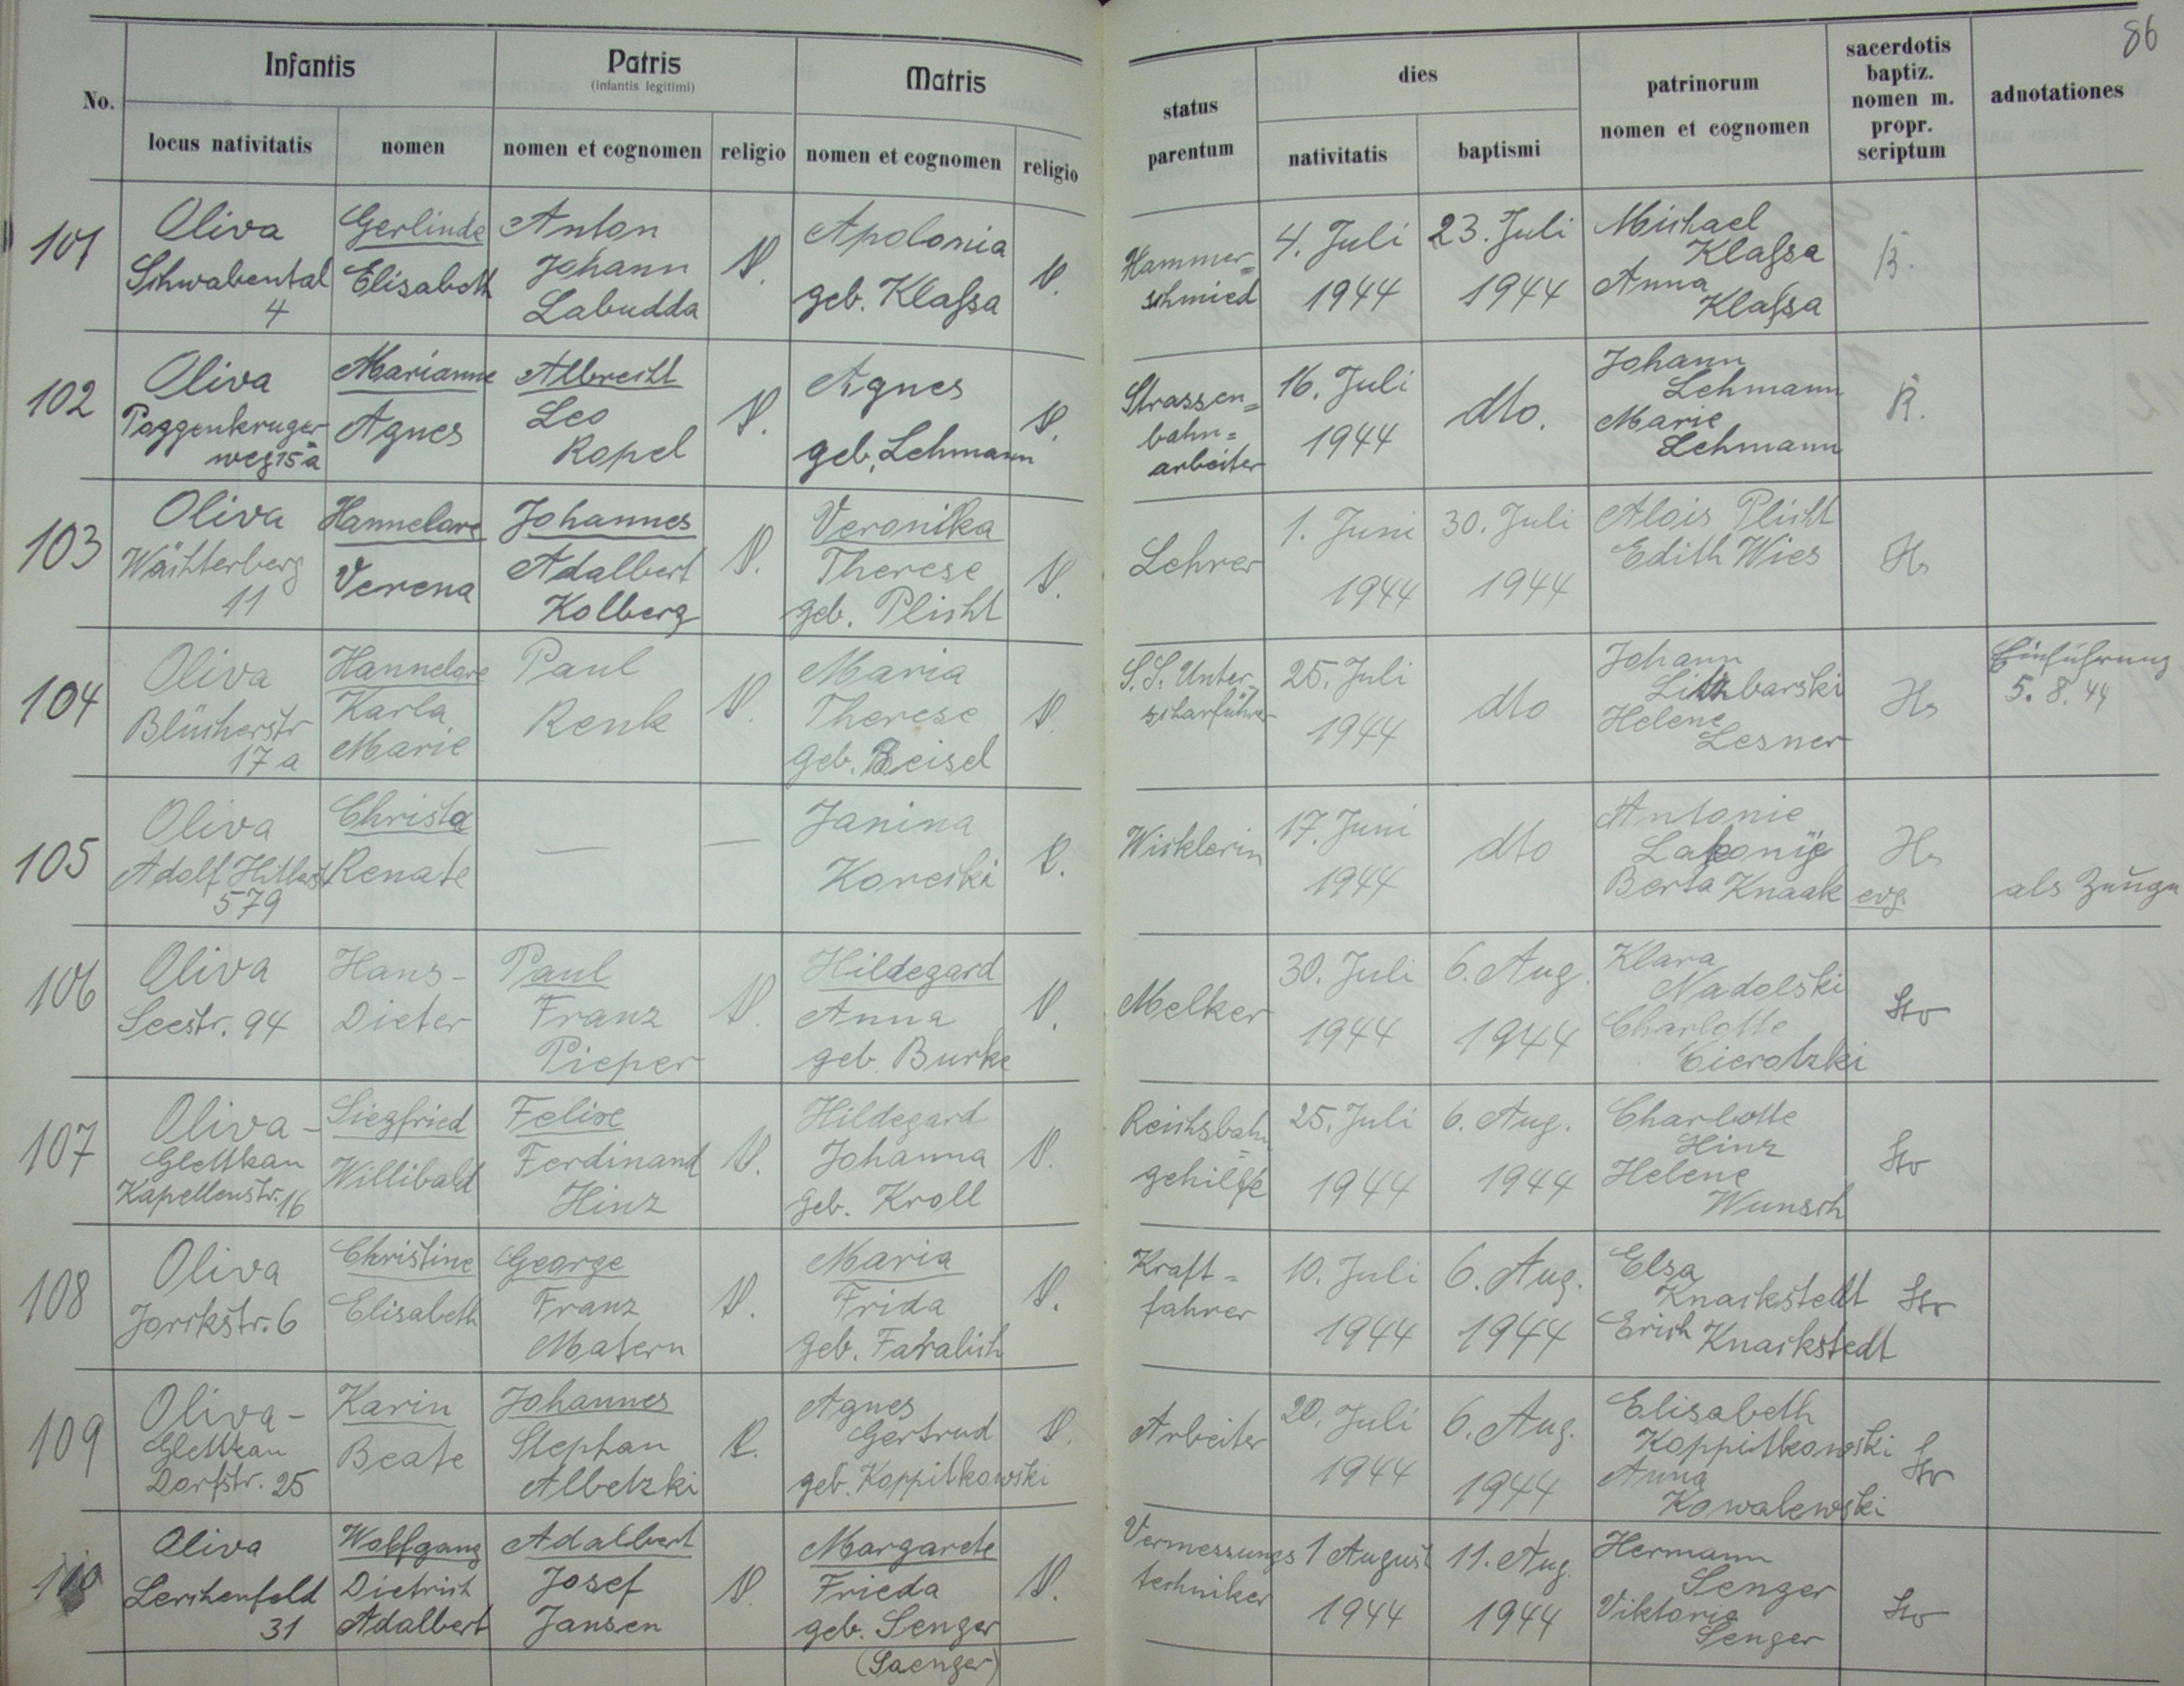 86
No.
Infantis
locus nativitatis
nomen
Patris
(infantis legitimi)
nomen et cognomen
religio
Matris
nomen et cognomen
religio
status parentum
dies
nativitatis
baptismi
patrinorum
nomen et cognomen
sacerdotis
baptiz.
nomen m.
propr.
scriptum
adnotationes
101
Oliva
Schwabental
4
Gerlinde
Elisabeth
Anton
Johann
Labudda
Apolonia
geb. Klaſsa
Hammer=
schmied
4. Juli
1944
23. Juli
1944
Michael
Klaſsa
Anna
Klaſsa
102
Oliva
Poggenkruger
weg 15 a
Marianne
Agnes
Albrecht
Leo
Ropel
Agnes
geb. Lehmann
Strassen=
bahn=
arbeiter
16. Juli
1944
dto.
Johann
Lehmann
Marie
Lehmann
R.
103
Oliva
Wächterberg
11
Hannelore
Verena
Johannes
Adalbert
Kolberg
Veronika
Therese
geb. Plicht
Lehrer
1. Juni
1944
30. Juli
1944
Alois Plicht
Edith Wies
Hs
104
Oliva
Blücherstr
17 a
Hannelore
Karla
Marie
Paul
Renk
Maria
Therese
geb. Beisel
S.S. Unter-
scharführer
25. Juli
1944
dto
Johann
Helene
Lesner
Hs
Einführung
5. 8. 44
105
Oliva
Adolf Hitlerst
579
Christa
Renate
—
—
Janina
Koreski
Wicklerin
17. Juni
1944
dto
Antonie
Berta Knaak
Hs
evg.
als Zeuge
106
Oliva
Seestr. 94
Hans-
Dieter
Paul
Franz
Pieper
Hildegard
Anna
geb. Burke
Melker
30. Juli
1944
6. Aug.
1944
Klara
Nadolski
Charlotte
Cierotzki
107
Oliva-
Glettkau
Kapellenstr. 16
Siegfried
Willibald
Felixe
Ferdinand
Hinz
Hildegard
Johanna
geb. Kroll
Reichsbahn
gehilfe
25. Juli
1944
6. Aug.
1944
Charlotte
Hinz
Helene
Wunsch
108
Oliva
Jorckstr. 6
Christine
Elisabeth
George
Franz
Matern
Maria
Frida
geb.
Kraft=
fahrer
10. Juli
1944
6. Aug.
1944
Elsa
Knackstedt
Erich Knackstedt
109
Oliva-
Glettkau
Dorfstr. 25
Karin
Beate
Johannes
Stephan
Albetzki
Agnes
Gertrud
geb. Koppitkowski
Arbeiter
20. Juli
1944
6. Aug.
1944
Elisabeth
Koppitkowski
Anna
Kowalewski
110
Oliva
Lerchenfeld
31
Wolfgang
Dietrich
Adalbert
Adalbert
Josef
Jansen
Margarete
Frieda
geb. Senger
(Saenger)
Vermessungs
techniker
1 August
1944
11. Aug.
1944
Hermann
Senger
Viktoria
Senger